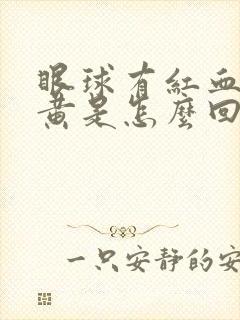 眼球有紅血
黃是怎麼回
一只安靜的安